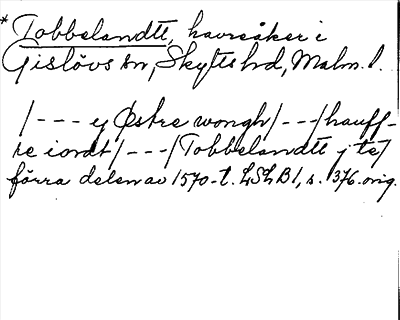 * Tobbelandtt, havreåker i
Gislövs sn, Skytts hd, Malm. l.
/--- y Østre wongh/---/hauff-
re iordt/---/Tobbelandtt j te/
förra delen av 1570-t. LSLB1, s. 376. orig.